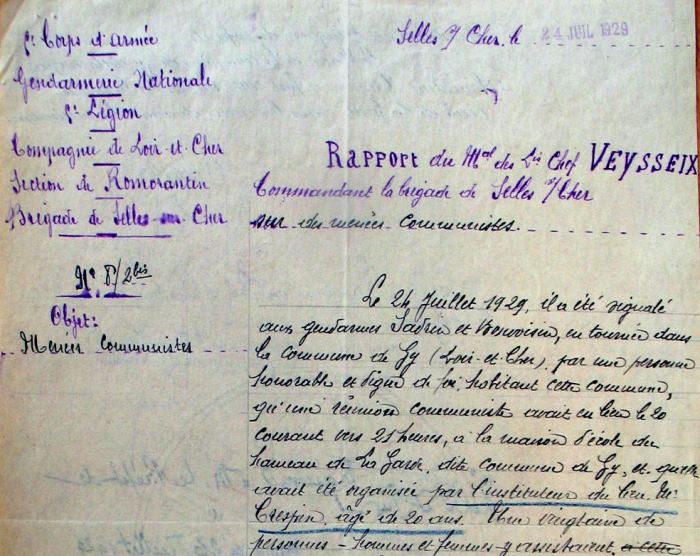 5e Corps d'Armée
Gendarmerie Nationale
5e Légion
Compagnie de Loir-et-Cher
Section de Romorantin
Brigade de Selles-sur-Cher
No 8/2bis
Objet:
Menées communistes
Selles s/ Cher, le 24 JUIL 1929
Rapport du Mal des Lis Chef VEYSSEIX
Commandant la brigade de Selles s/Cher
sur des menées communistes.
Le 24 Juillet 1929, il a été signalé
aux gendarmes et en tournée dans
la commune de Gy (Loir-et-Cher), par une personne
honorable et digne de foi, habitant cette commune,
qu'une réunion communiste avait eu lieu le 20
courant vers 21 heures, à la maison d'école du
hameau de La Garde, dite commune de Gy, et qu'elle
avait été organisée par l'instituteur du lieu, Mr
Crespin, âgé de 20 ans. Une vingtaine de
personnes - hommes et femmes - y assistaient, à cette